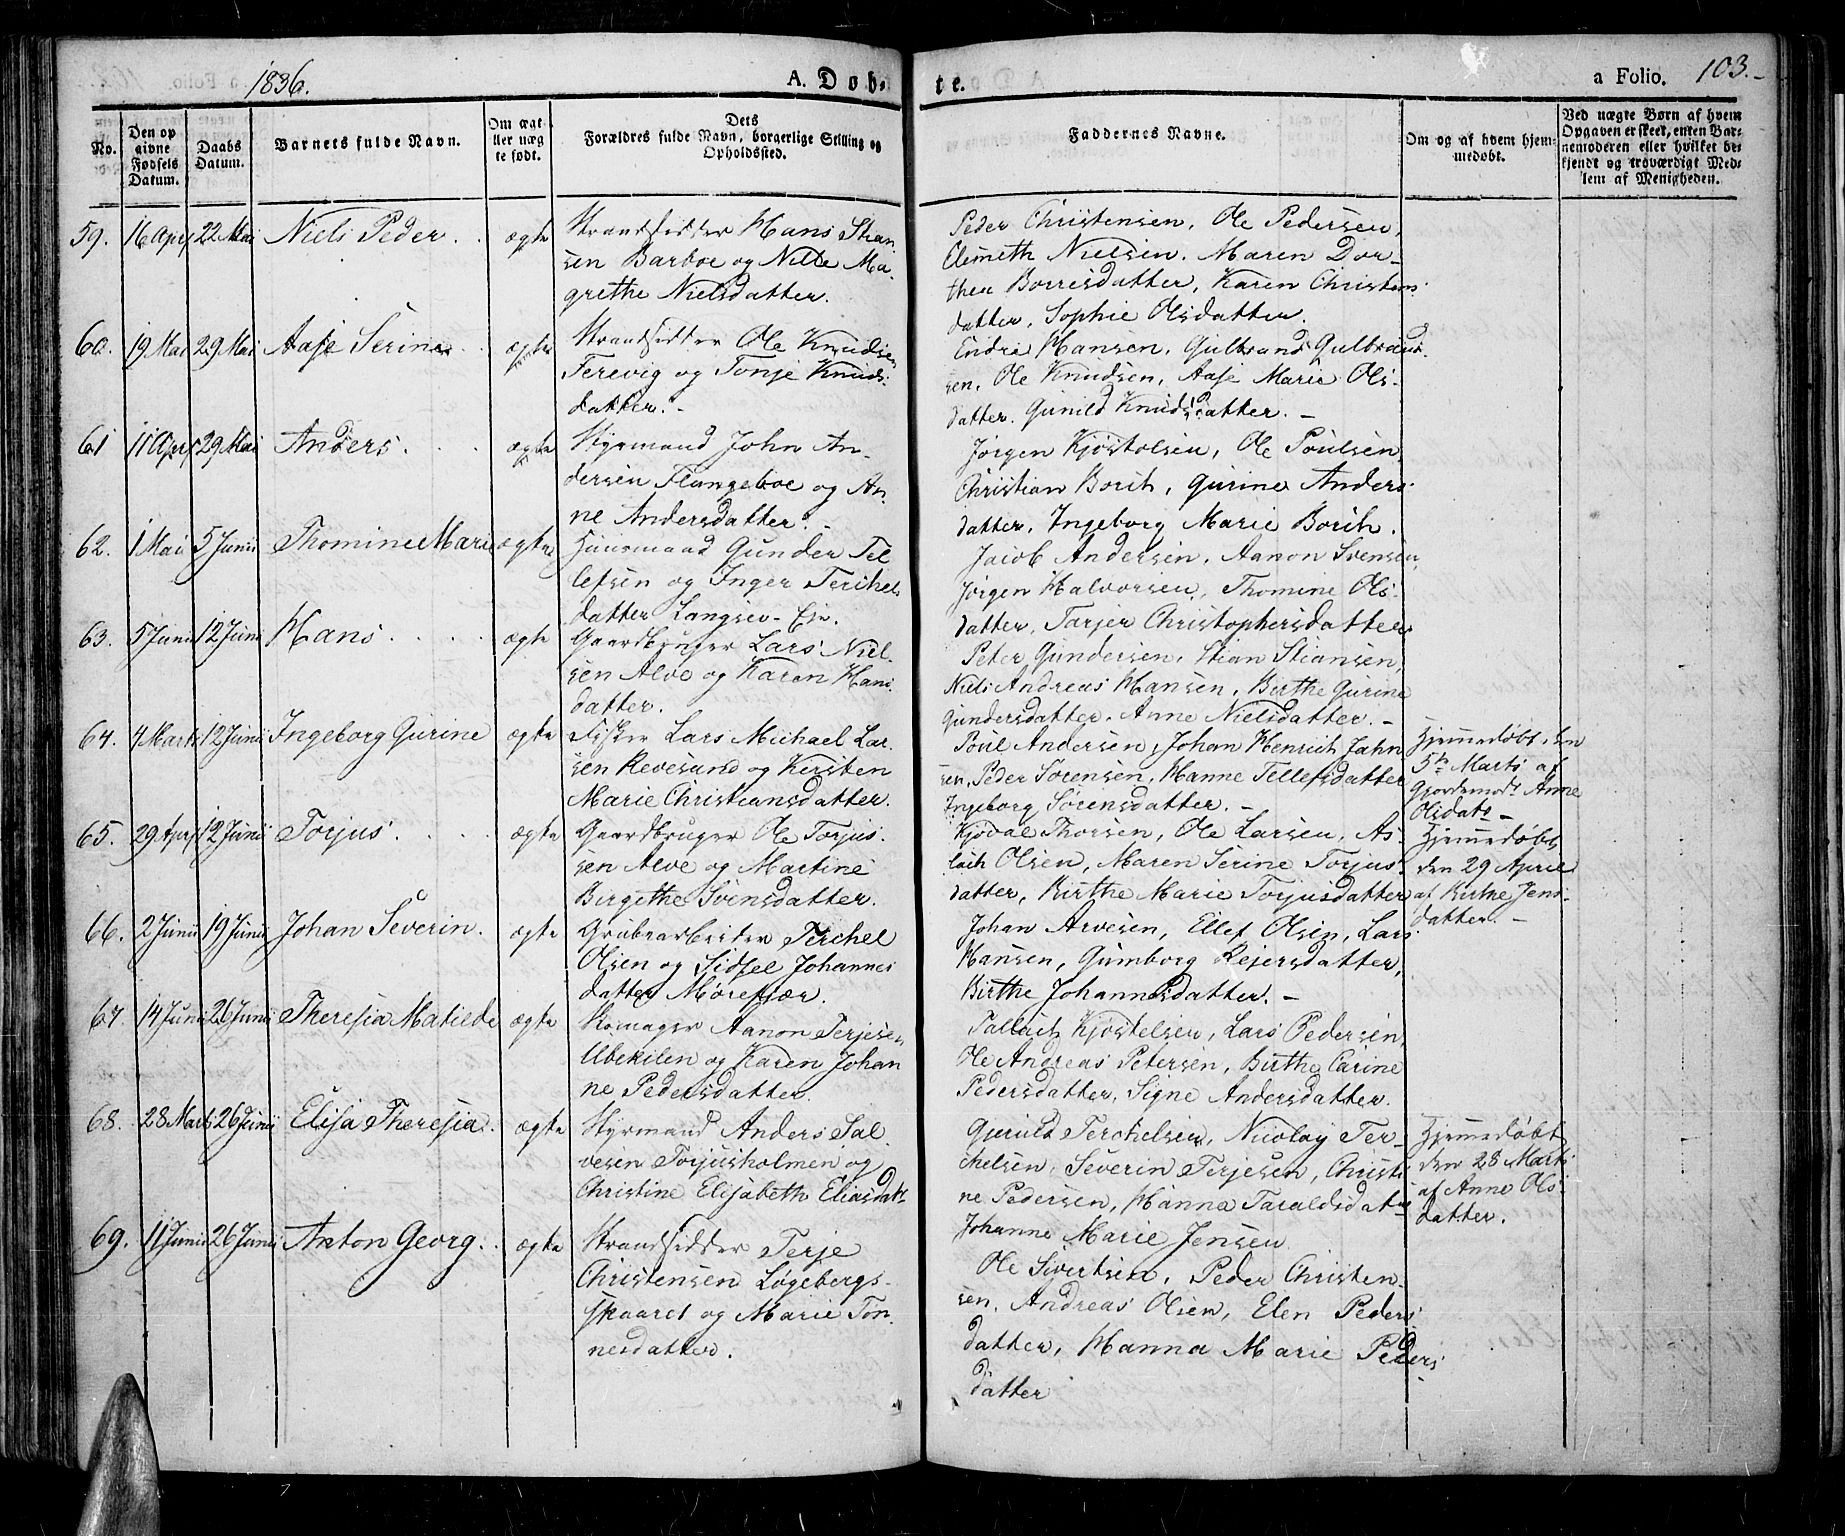 1836.
A. Døb-
te.
a Folio. 103.
No.
Den op
givne
Fødsels
Datum.
Daabs
Datum.
Barnets fulde Navn.
Om ægt
ller næg
te født.
Dets
Forældres fulde Navn, borgerlige Stilling og
Opholdssted.
Faddernes Navne.
Om og af hvem hjem-
medøbt.
Ved uægte Børn af hvem
Opgaven er skeet, enten Bar-
nemoderen eller hvilket be-
kjendt og troværdigt Med-
lem af Menigheden.
59. 16 April 22 Mai Niels Peder. ægte
Strandsidder Hans Stian
sen Barboe og Nille Ma-
grethe Nielsdatter.
Peder Christensen, Ole Pedersen,
Clemeth Nielsen. Maren Dor-
thea Borresdatter, Karen Christens
datter, Sophie Olsdatter.
60. 19 Mai 29 Mai Aase Serine ægte
Strandsidder Ole Knudsen
Terevig og Tonje Knuds-
datter.-
Endre Hansen, Gulbrand Gulbrand
sen, Ole Knudsen, Aase Marie Ols-
datter. Gunild Knudsdatter. -
61 11 April 29 Mai Anders. ægte
Styrmand John An-
dersen Flangeboe og An-
ne Andersdatter. -
Jörgen Kjöstolsen, Ole Poulsen,
Christian Borch, Gurine Anders
datter, Ingeborg Marie Borch.
62. 1 Mai 5 Junii Thomine Marie ægte
Huusmand Gunder Tel
lefsen og Inger Terchels
datter Langsev-Eie.
Jacob Andersen, Aanon Svensen,
Jörgen Halvorsen, Thomine Ols-
datter, Tarjer Christophersdatter
63. 5 Junii 12 Junii Hans. ægte
Gaardbruger Lars Niel-
sen Alve og Karen Hans
datter.
Peter Gundersen, Stian Stiansen,
Niels Andreas Hansen, Birthe Gurine
Gundersdatter. Anne Nielsdatter. -
64. 4 Marts 12 Junii Ingeborg Gurine ægte
Fisker Lars Michael Lar-
sen Revesand og Kirsten
Marie Christiansdatter.
Poul Andersen, Johan Henrich Jahn
sen, Peder Sörensen, Hanne Tellefsdatter
Ingeborg Sörensdatter. -
Hjemmedöbt den
5te Marts af
Gjordemodr Anne
Olsdatr -
65. 29 April 12 Junii Torjus. ægte
Gaardbruger Ole Torjus-
sen Alve og Martine
Birgethe Svensdatter.
Kjödal Thorsen, Ole Larsen, As-
lach Olsen, Maren Serine Torjus-
datter, Birthe Marie Torjusdatter
Hjemmedöbt
den 29 April
af Birthe Jens
datter. -
66. 2 Junii 19 Junii Johan Severin. ægte
Grubearbeider Terchel
Olsen og Sidsel Johannes
datter Mörefjær.
Johan Arvesen, Ellef Olsen, Lars
Hansen, Gumborg Reiersdatter,
Birthe Johannesdatter. -
67. 14 Junii 26 Junii Theresia Matilde ægte
Skomager Aanon Terjesen
Ubekilen og Karen Johan
ne Pedersdatter.
Pallach Kjöstelsen, Lars Pedersen,
Ole Andreas Petersen, Birthe Carine
Pedersdatter, Signe Andersdatter.
68. 28 Marts 26 Junii Elisa Theresia. ægte
Styrmand Anders Sal
vesen Torjusholmen og
Christine Elisabeth Eliasdatr
Gjeruld Terchelsen, Nicolay Ter-
chelsen, Severin Terjesen, Christi
ne Pedersen, Hanna Taraldsdatter
Johanne Marie Jensen
Hjemmedöbt
den 28 Marts
af Anne Ols-
datter.
69. 11 Junii 26 Junii Anton Georg. ægte
Strandsidder Terje
Christensen Lögebergs-
skaaret og Marie Tön-
nesdatter.
Ole Sivertsen, Peder Christen-
sen, Andreas Olsen, Elen Peders
datter, Hanna Marie Peders
datter